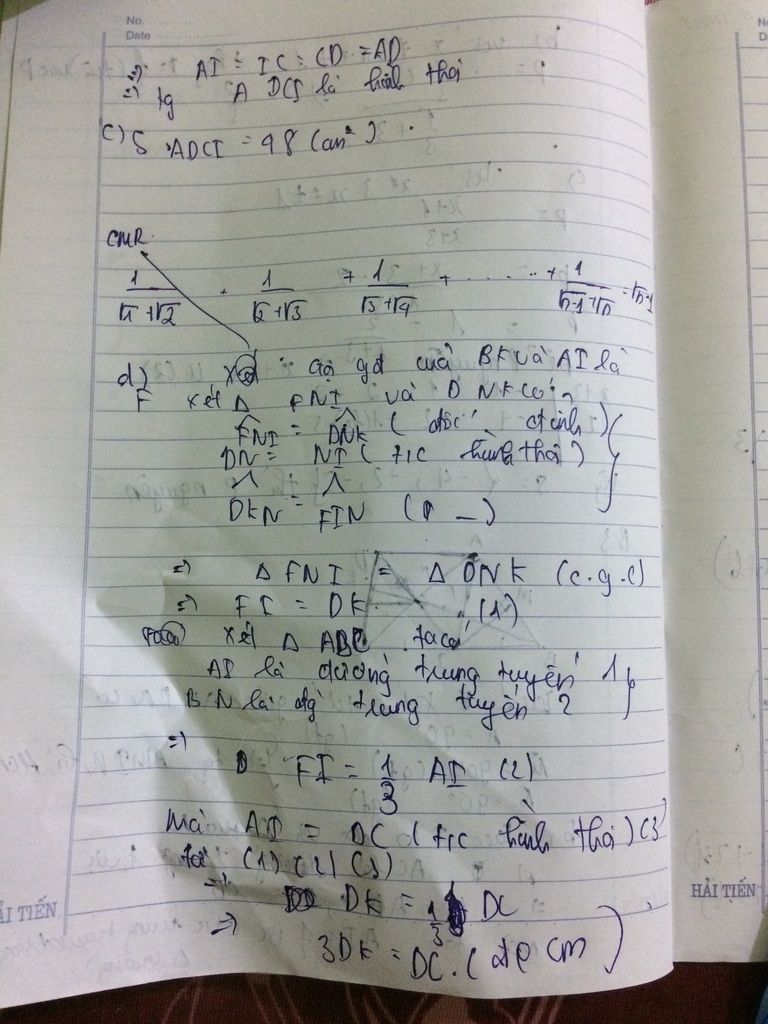 No.
Date
=> AI = IC = CD = AD
=> tg ADCI là hình thoi
c) S ADCI = 48 (cm²)
CMR
1/(√1+√2) + 1/(√2+√3) + 1/(√3+√4) + ....... + 1/(√n-1+√n) = √n-1
d) xét : Gọi gđ của BK và AI là
F xét Δ FNI và Δ DNK có
FNI = DNK (đối đỉnh)
DN = NI (t/c hình thoi)
DKN = FIN
=> Δ FNI = Δ DNK (c.g.c)
=> FI = DK (1)
xét Δ ABC ta có
AI là đường trung tuyến 1
BN là đg trung tuyến 2
=>
FI = 1/3 AI (2)
mà AI = DC (t/c hình thoi) (3)
từ (1) (2) (3)
=> DK = 1/3 DC
=> 3DK = DC. (đpcm)
HẢI TIẾN
ẢI TIẾN